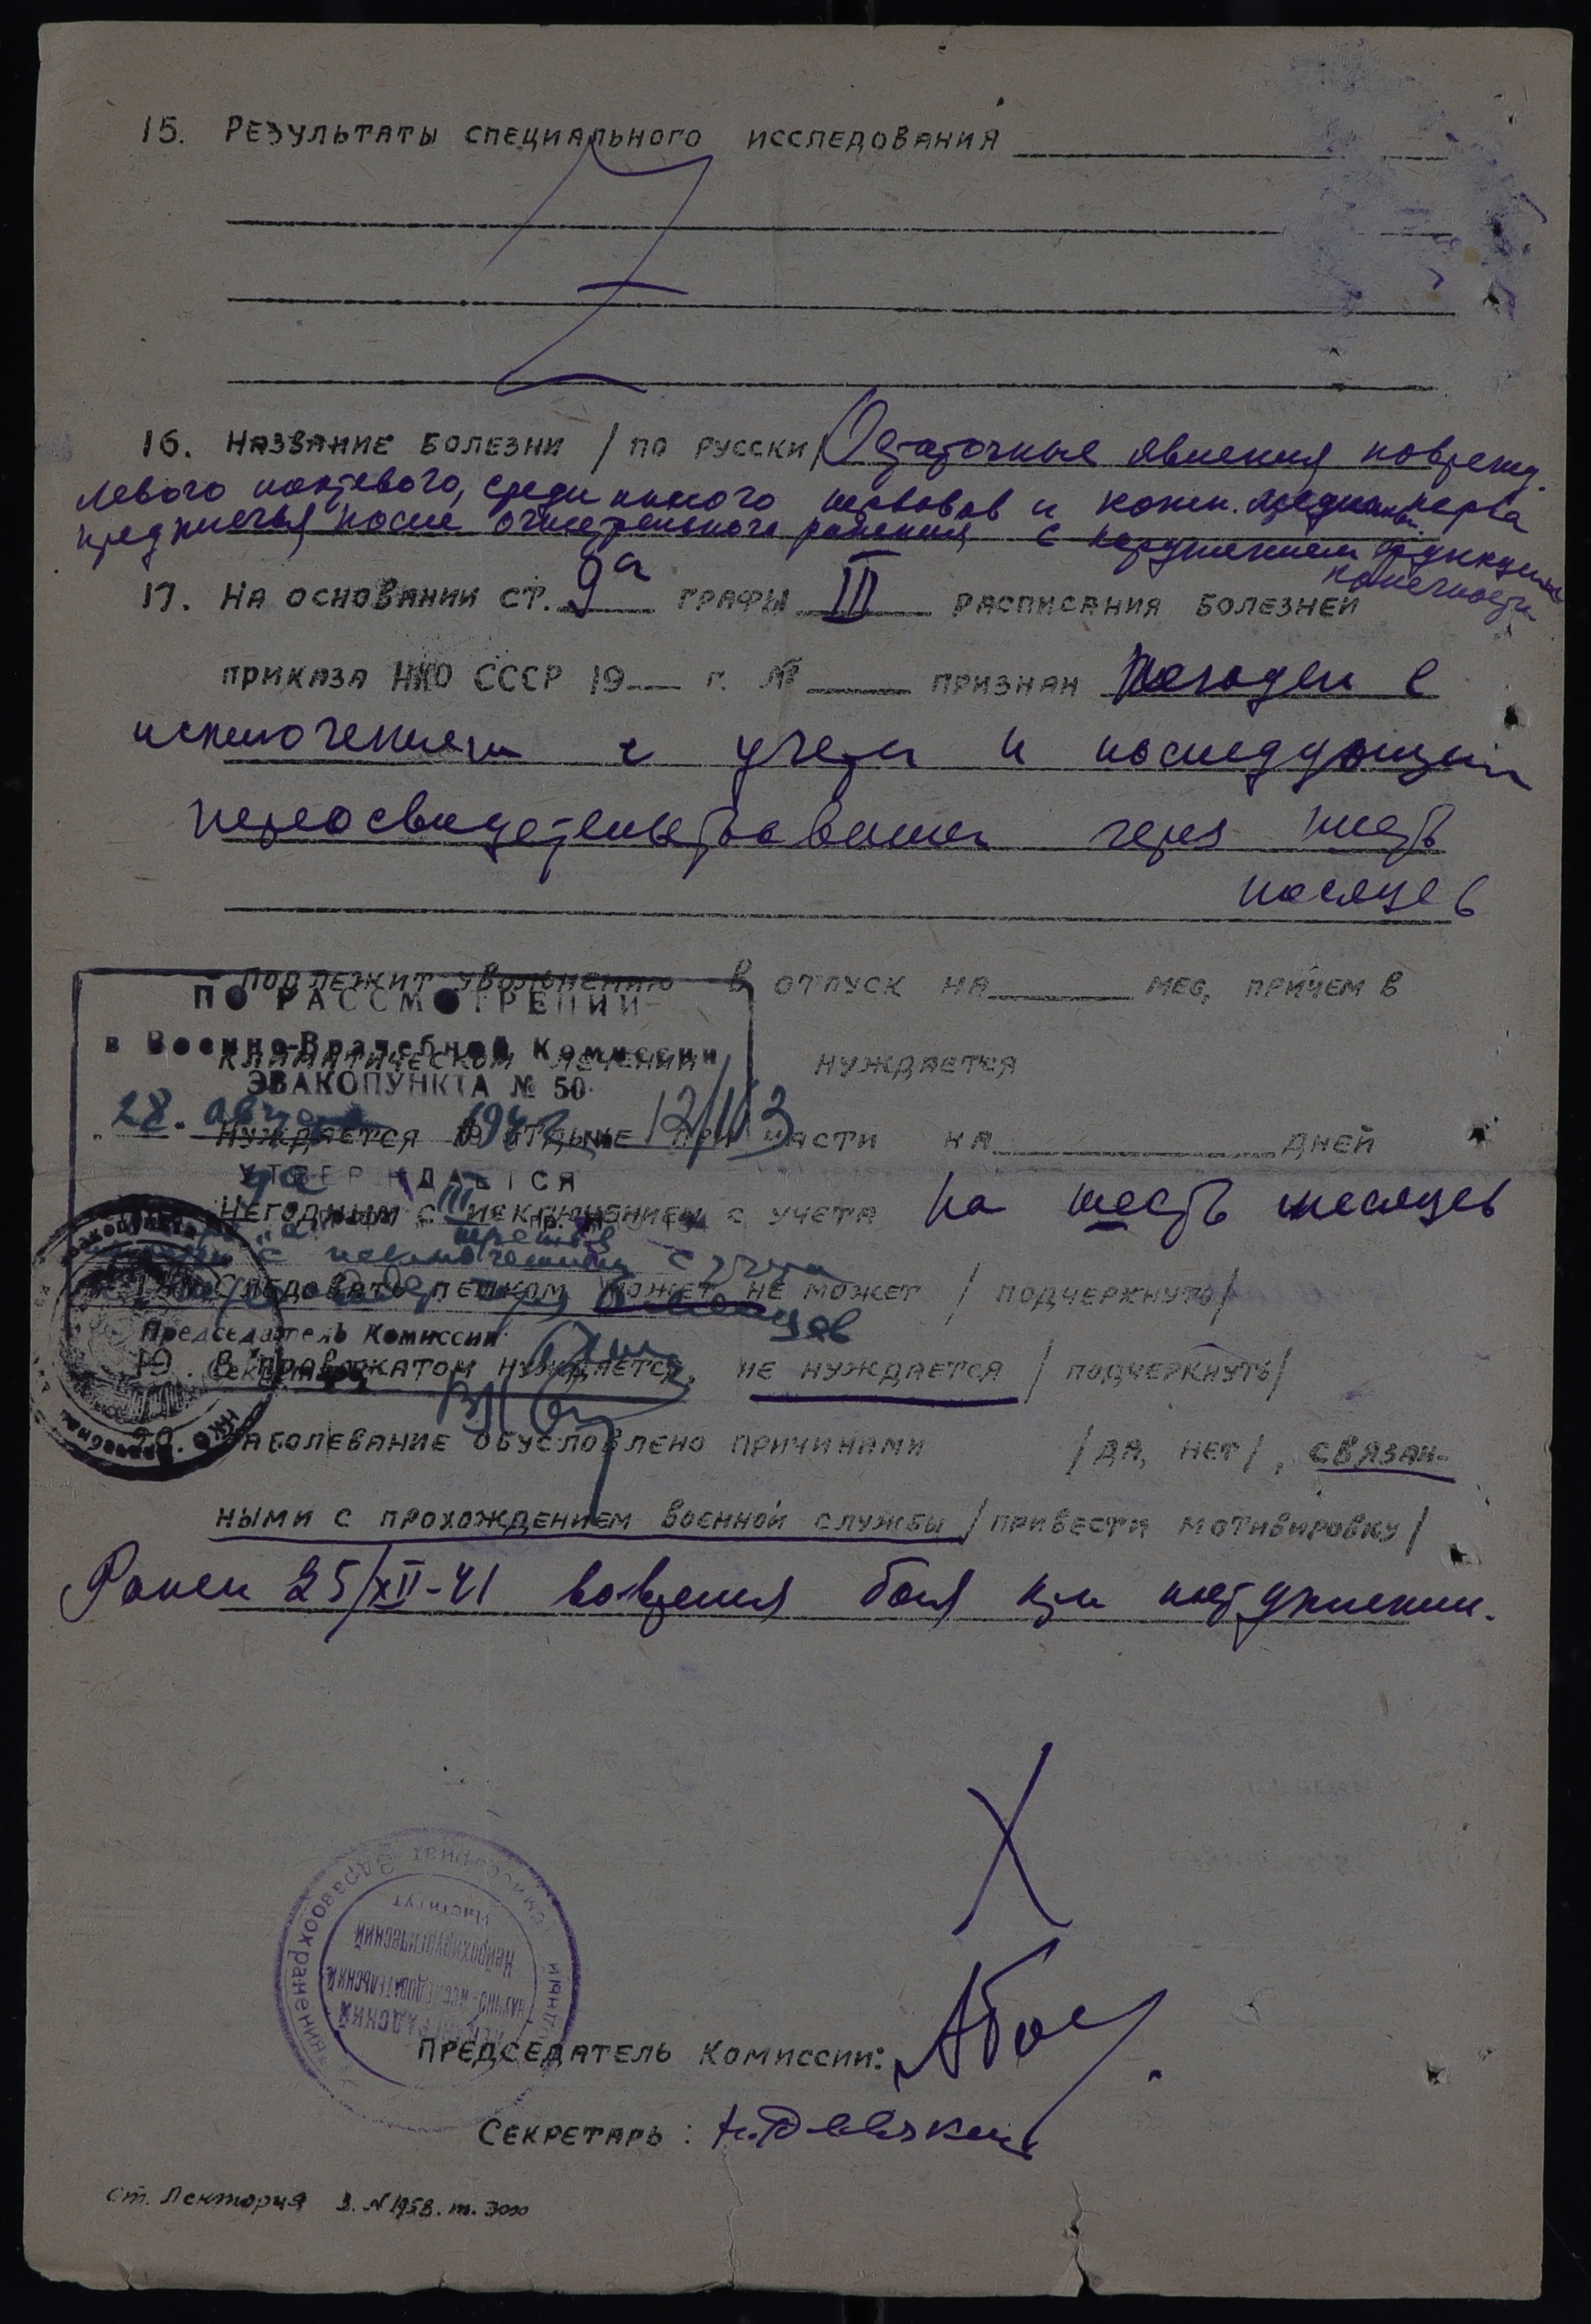 15. Результаты специального исследования
16. Название болезни / по русски / Остаточные явления поврежд.
левого локтевого, срединного нервов и кожн. нерва
предплечья после огнестрельного ранения с нарушением функции
конечности
17. На основании ст. 9а графы III расписания болезней
приказа НКО СССР 19 г. № признан Негоден с
исключением с учета и последующим
переосвидетельствованием через шесть
месяцев
Подлежит увольнению в отпуск на мес, причем в
климатическом лечении нуждается
ПО РАССМОТРЕНИИ
в Военно-Врачебной Комиссии
ЭВАКОПУНКТА № 50
28. 1942 12/113
Нуждается в отдыхе при части на дней
УТВЕРЖДАЕТСЯ
Негодным с исключением с учета на шесть месяцев
с исключением с учета
Следовать пешком может не может / подчеркнуть /
Председатель Комиссии
Секретарь
19. В провожатом нуждается, не нуждается / подчеркнуть /
20. Заболевание обусловлено причинами / да, нет /, связан-
ными с прохождением военной службы / привести мотивировку /
Ранен 25/XII-41 во время боя при наступлении.
Здравоохранения
Институт
Нейрохирургический
научно-исследовательский
Ленинградский
Председатель комиссии:
Секретарь: